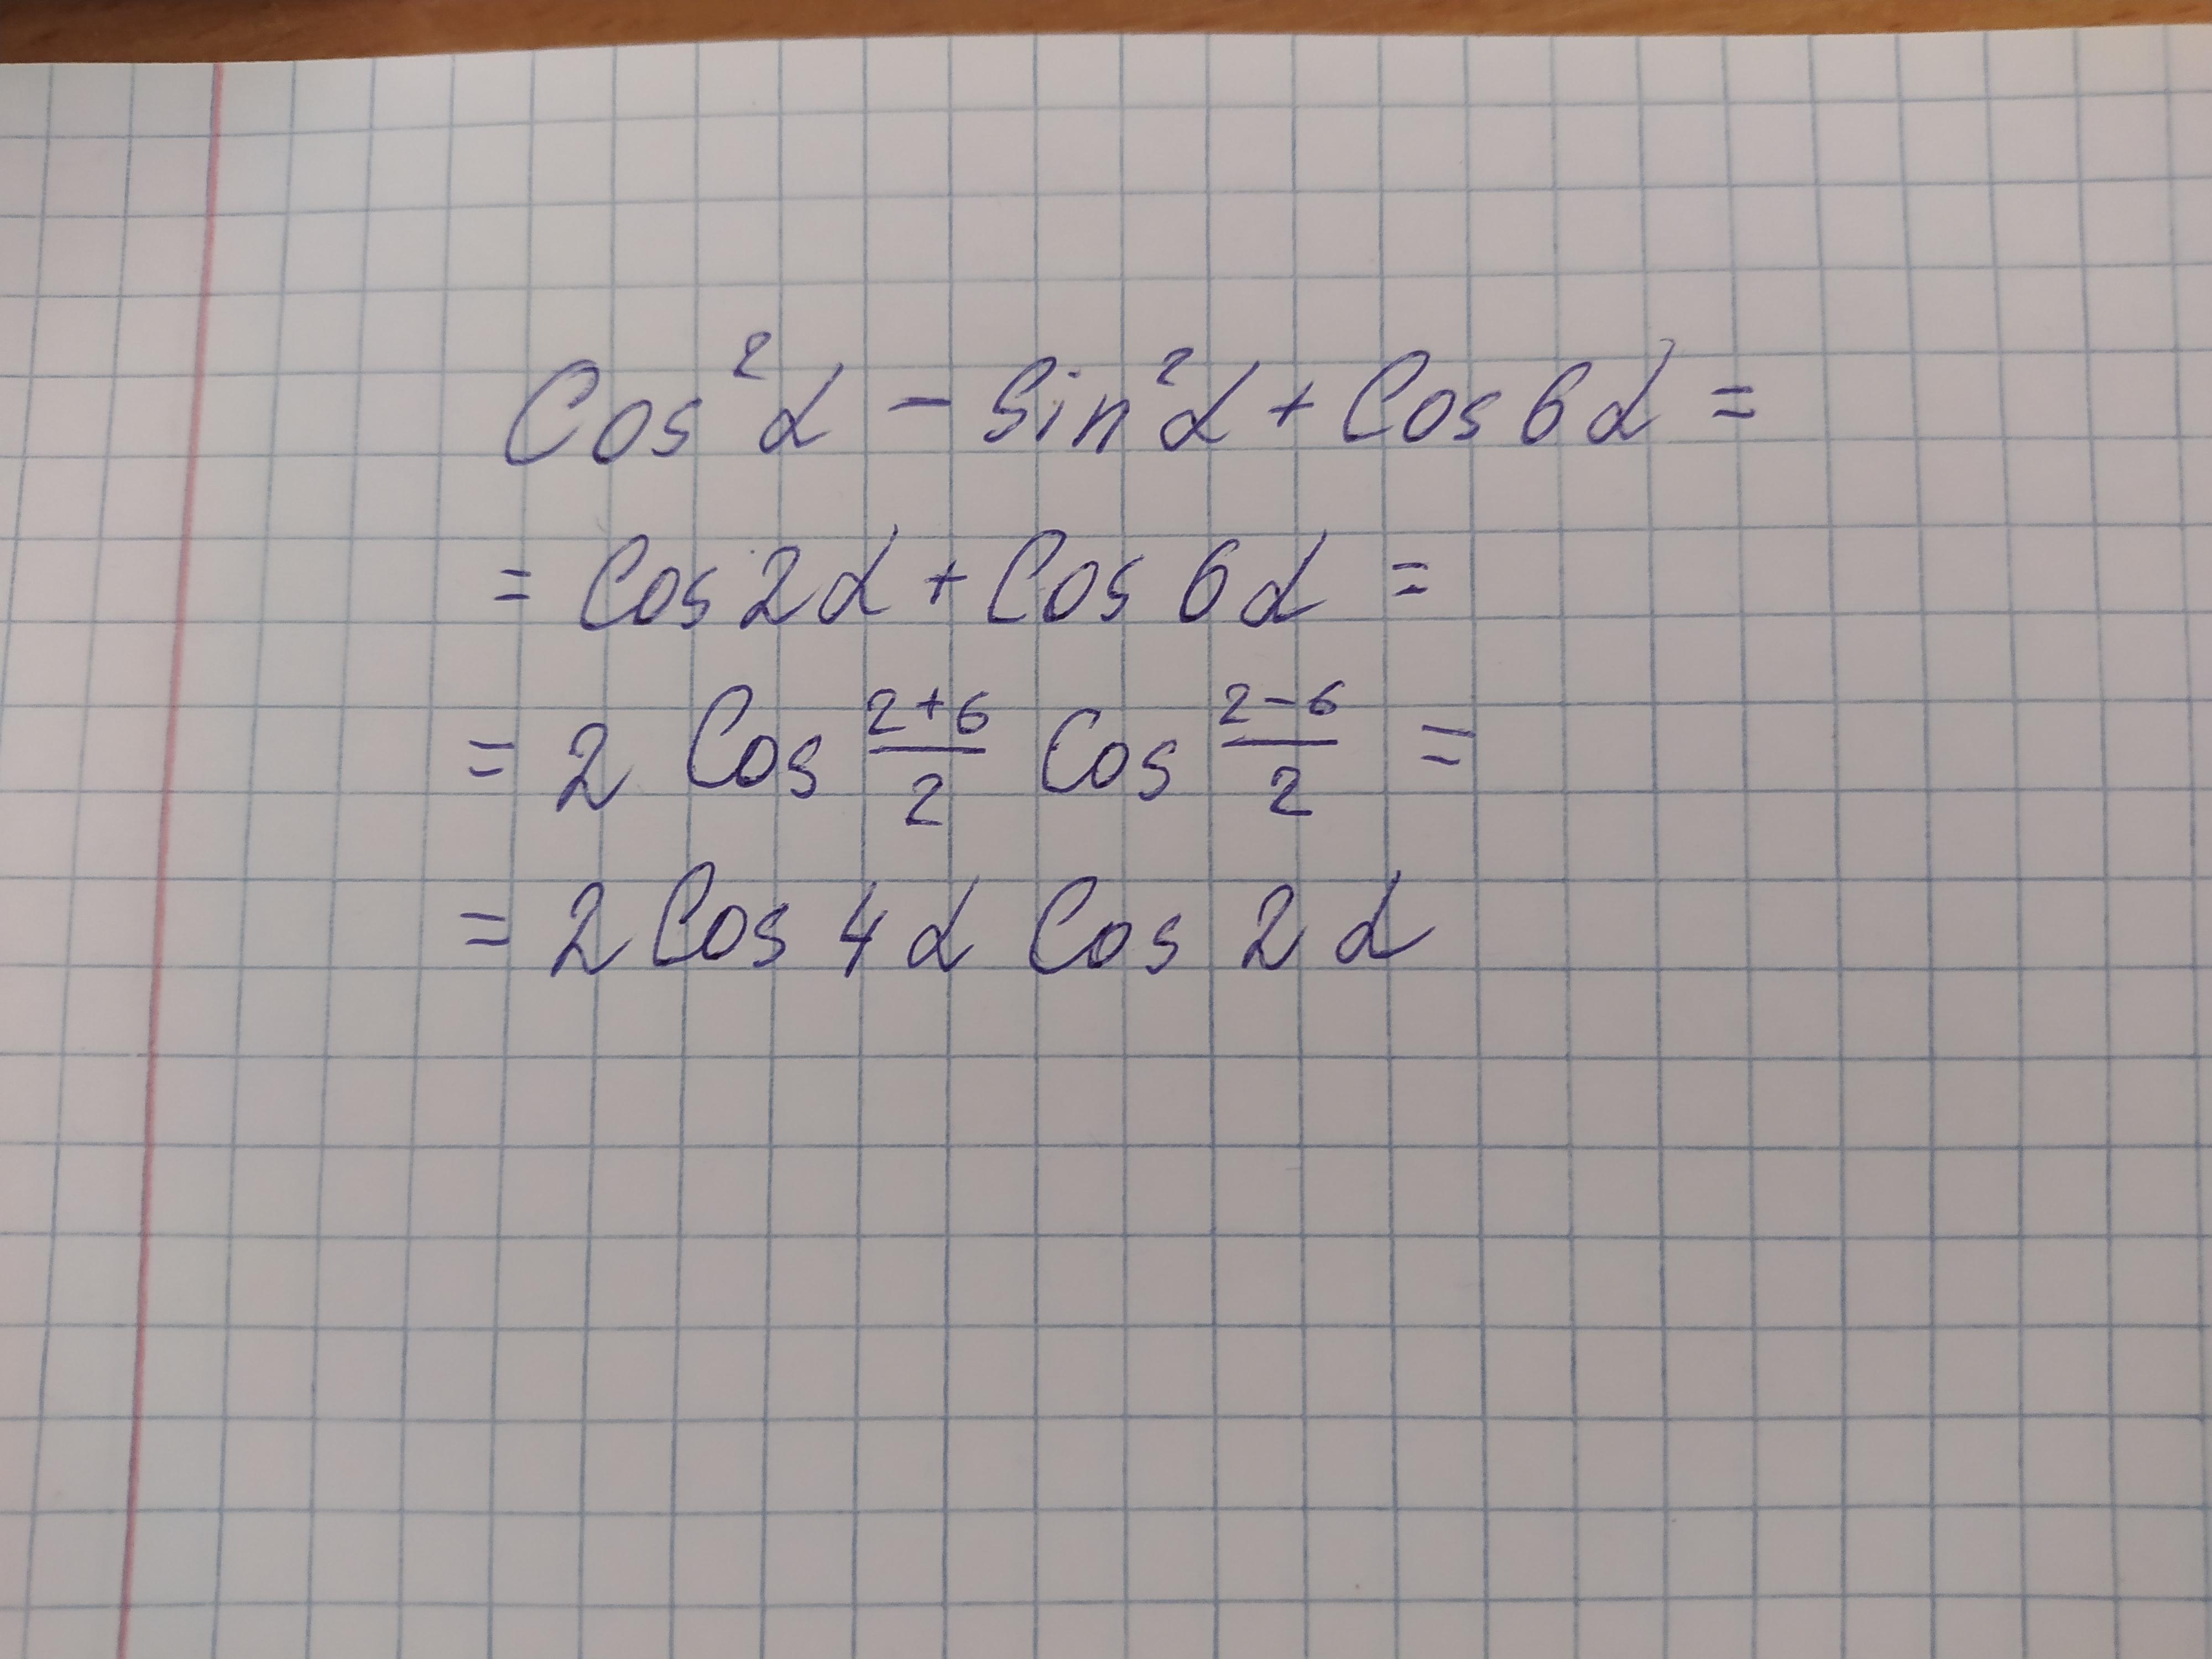 Cos²α - Sin²α + Cos 6α =
= Cos 2α + Cos 6α =
= 2 Cos (2+6)/2 Cos (2-6)/2 =
= 2 Cos 4α Cos 2α